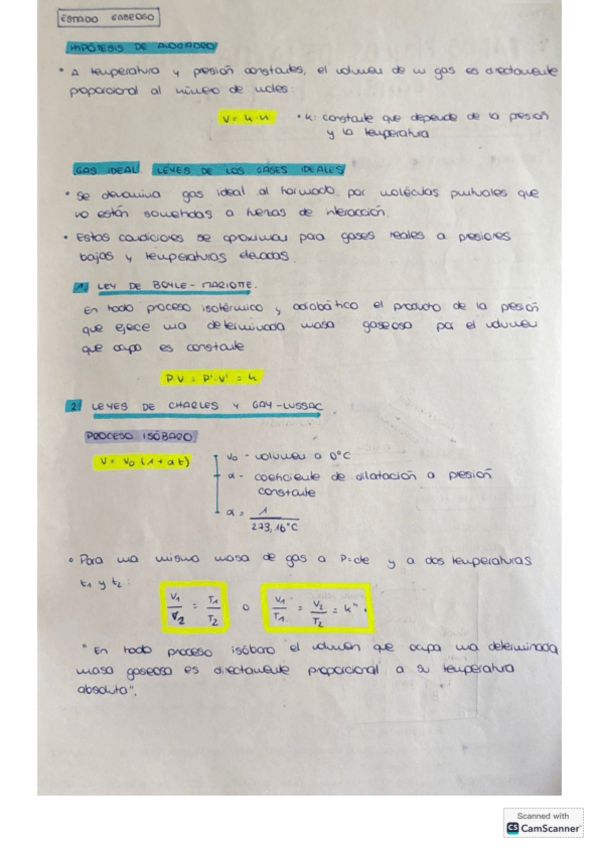 ESTADO GASEOSO
HIPÓTESIS DE AVOGADRO
• A temperatura y presión constantes, el volumen de un gas es directamente
proporcional al número de moles:
V = k·n
• k: constante que depende de la presión
y la temperatura
GAS IDEAL. LEYES DE LOS GASES IDEALES
• Se denomina gas ideal al formado por moléculas puntuales que
no están sometidas a fuerzas de interacción.
• Estas condiciones se aproximan para gases reales a presiones
bajas y temperaturas elevadas.
1. LEY DE BOYLE - MARIOTTE.
En todo proceso isotérmico y adiabático el producto de la presión
que ejerce una determinada masa gaseosa por el volumen
que ocupa es constante
P·V = P'·V' = k
2. LEYES DE CHARLES Y GAY-LUSSAC
PROCESO ISÓBARO
V = V₀ (1 + α t)
V₀ - volumen a 0°C
α - coeficiente de dilatación a presión
constante
α = 1 / 273,16°C
• Para una misma masa de gas a P=cte y a dos temperaturas
t₁ y t₂:
V₁/V₂ = T₁/T₂ o V₁/T₁ = V₂/T₂ = k".
"En todo proceso isóbaro el volumen que ocupa una determinada
masa gaseosa es directamente proporcional a su temperatura
absoluta".
Scanned with
CS CamScanner